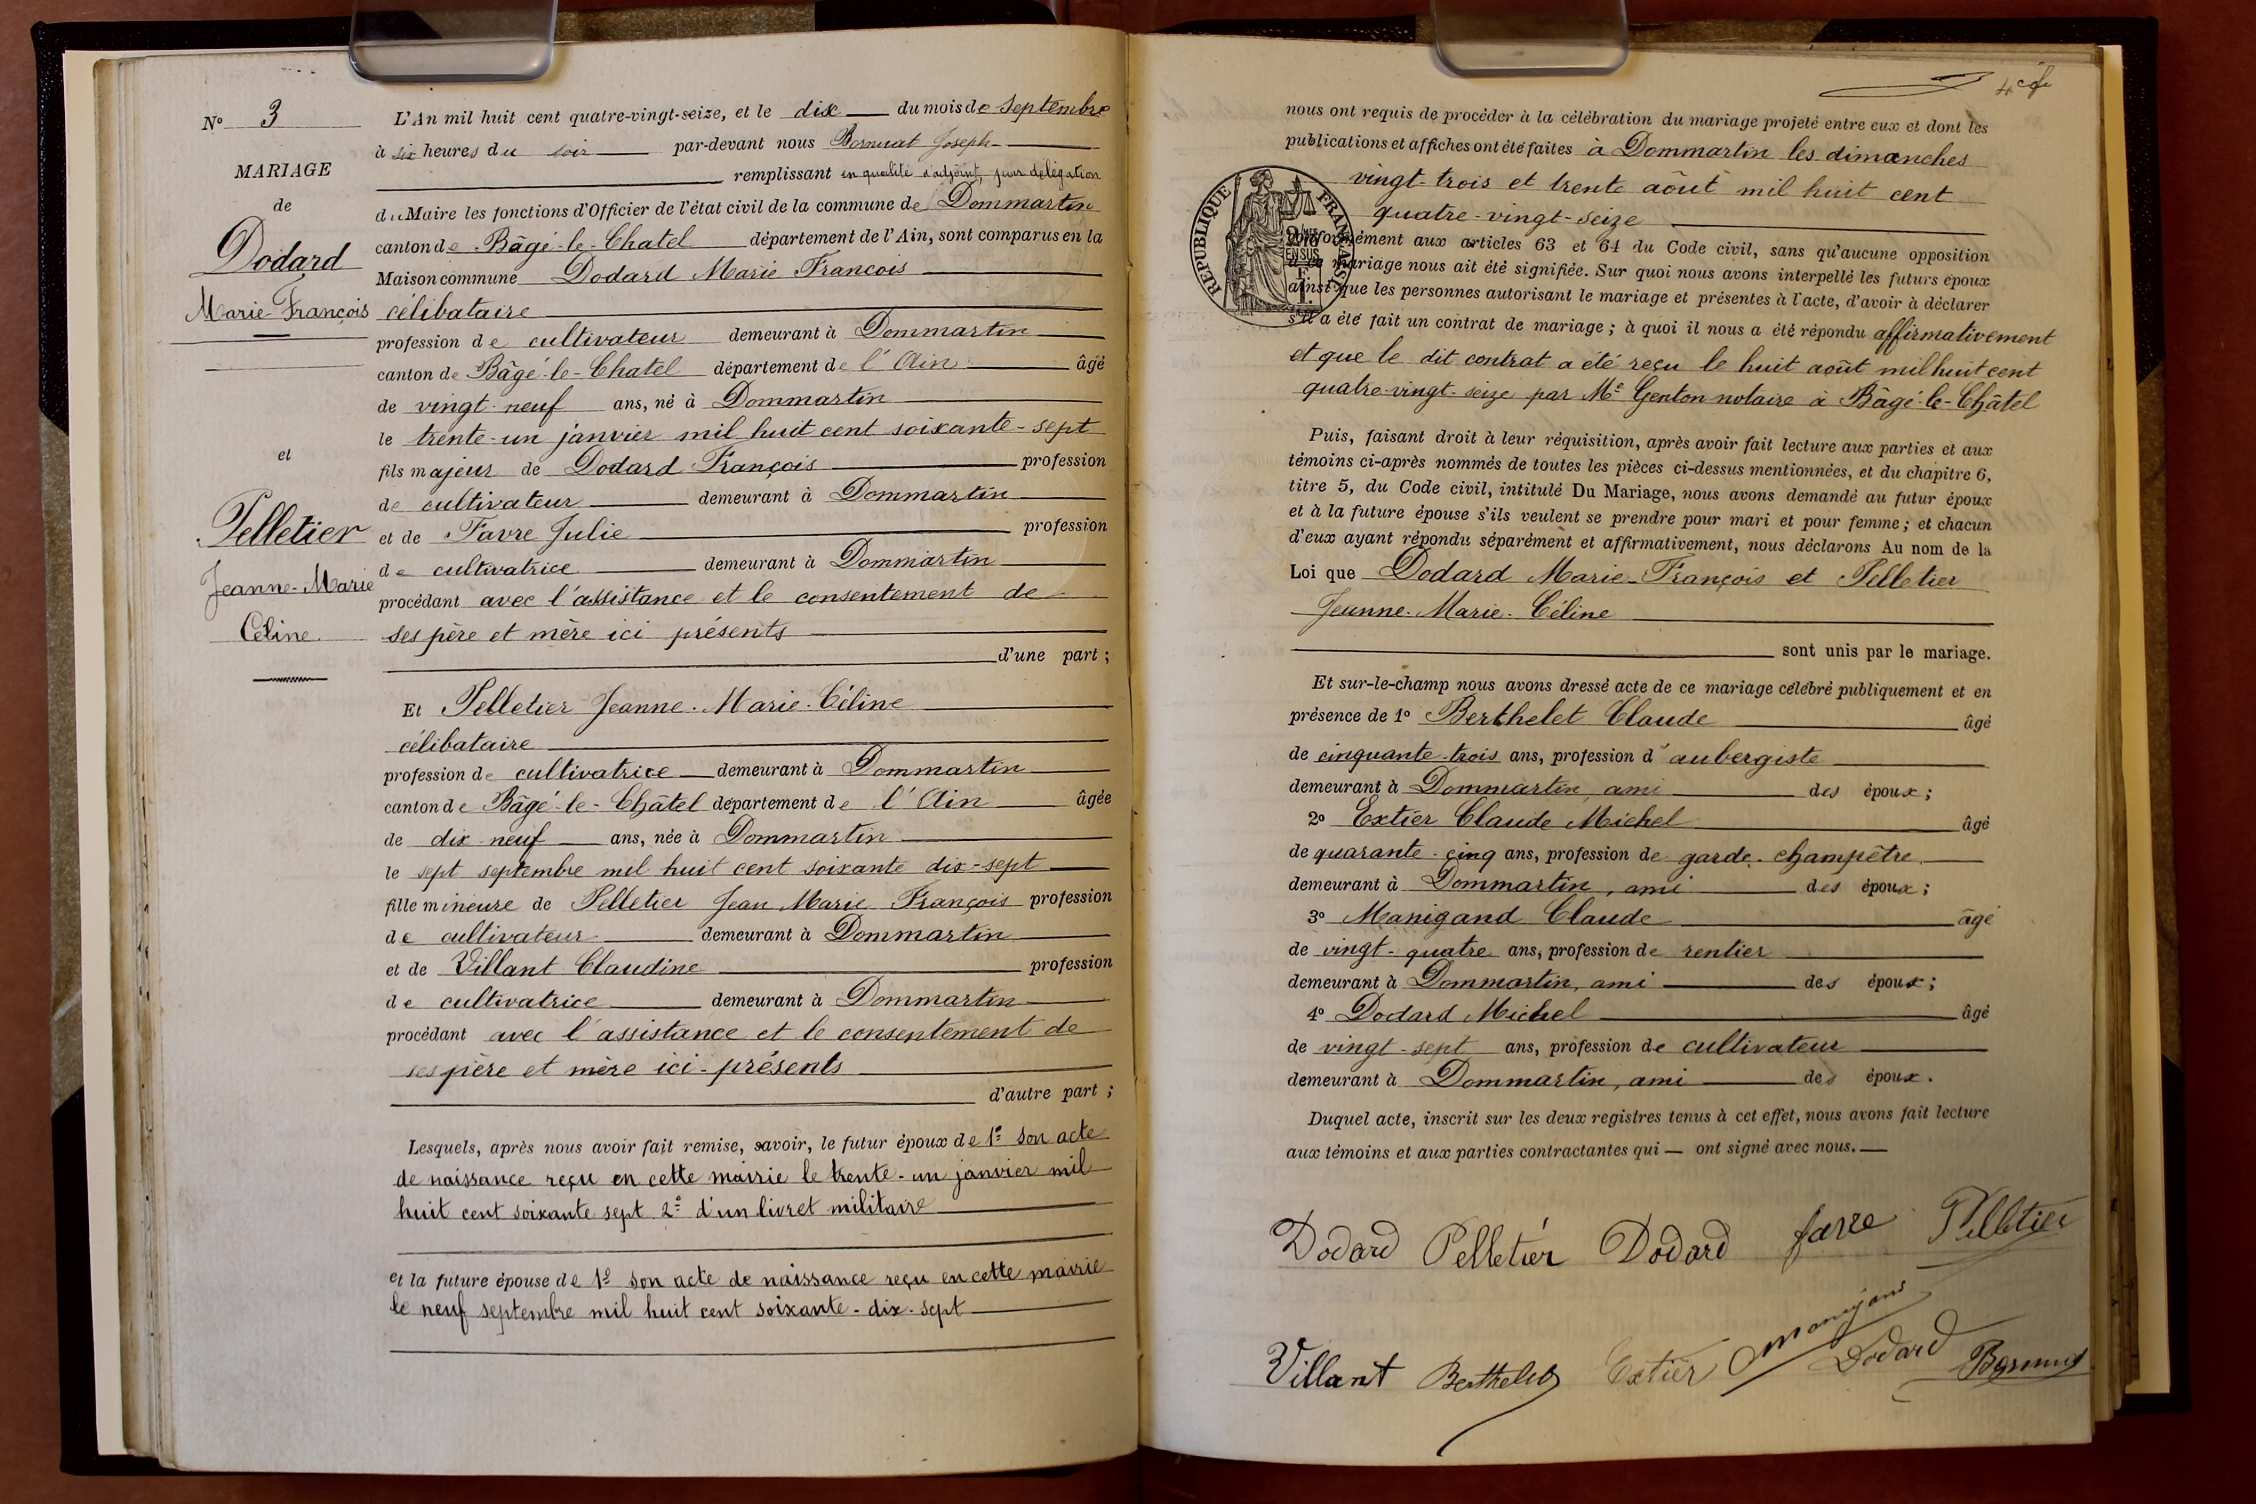 N° 3
MARIAGE
de
Dodard
Marie François
et
Pelletier
Jeanne-Marie
Céline
L'An mil huit cent quatre-vingt-seize, et le dix du mois de septembre
à six heures du soir par-devant nous Joseph
remplissant en qualité d'adjoint, par délégation
du Maire les fonctions d'Officier de l'état civil de la commune de Dommartin
canton de Bâgé-le-Chatel département de l'Ain, sont comparus en la
Maison commune Dodard Marie François
célibataire
profession de cultivateur demeurant à Dommartin
canton de Bâgé-le-Chatel département de l'Ain âgé
de vingt-neuf ans, né à Dommartin
le trente-un janvier mil huit cent soixante-sept
fils majeur de Dodard François profession
de cultivateur demeurant à Dommartin
et de Favre Julie profession
de cultivatrice demeurant à Dommartin
procédant avec l'assistance et le consentement de
ses père et mère ici présents
d'une part ;
Et Pelletier Jeanne-Marie-Céline
célibataire
profession de cultivatrice demeurant à Dommartin
canton de Bâgé-le-Châtel département de l'Ain âgée
de dix-neuf ans, née à Dommartin
le sept septembre mil huit cent soixante dix-sept
fille mineure de Pelletier Jean Marie François profession
de cultivateur demeurant à Dommartin
et de Villant Claudine profession
de cultivatrice demeurant à Dommartin
procédant avec l'assistance et le consentement de
ses père et mère ici-présents
d'autre part ;
Lesquels, après nous avoir fait remise, savoir, le futur époux de 1° son acte
de naissance reçu en cette mairie le trente-un janvier mil
huit cent soixante sept 2° d'un livret militaire
et la future épouse de 1° son acte de naissance reçu en cette mairie
le neuf septembre mil huit cent soixante-dix-sept
nous ont requis de procéder à la célébration du mariage projeté entre eux et dont les
publications et affiches ont été faites à Dommartin les dimanches
vingt-trois et trente août mil huit cent
quatre-vingt-seize
REPUBLIQUE FRANÇAISE
conformément aux articles 63 et 64 du Code civil, sans qu'aucune opposition
à ce mariage nous ait été signifiée. Sur quoi nous avons interpellé les futurs époux
ainsi que les personnes autorisant le mariage et présentes à l'acte, d'avoir à déclarer
s'il a été fait un contrat de mariage ; à quoi il nous a été répondu affirmativement
et que le dit contrat a été reçu le huit août mil huit cent
quatre-vingt-seize par Me Genton notaire à Bâgé-le-Châtel
Puis, faisant droit à leur réquisition, après avoir fait lecture aux parties et aux
témoins ci-après nommés de toutes les pièces ci-dessus mentionnées, et du chapitre 6,
titre 5, du Code civil, intitulé Du Mariage, nous avons demandé au futur époux
et à la future épouse s'ils veulent se prendre pour mari et pour femme ; et chacun
d'eux ayant répondu séparément et affirmativement, nous déclarons Au nom de la
Loi que Dodard Marie-François et Pelletier
Jeanne-Marie-Céline
sont unis par le mariage.
Et sur-le-champ nous avons dressé acte de ce mariage célébré publiquement et en
présence de 1° Berthelet Claude âgé
de cinquante-trois ans, profession d'aubergiste
demeurant à Dommartin, ami des époux ;
2° Extier Claude Michel âgé
de quarante-cinq ans, profession de garde-champêtre
demeurant à Dommartin, ami des époux ;
3° Manigand Claude âgé
de vingt-quatre ans, profession de rentier
demeurant à Dommartin, ami des époux ;
4° Dodard Michel âgé
de vingt-sept ans, profession de cultivateur
demeurant à Dommartin, ami des époux.
Duquel acte, inscrit sur les deux registres tenus à cet effet, nous avons fait lecture
aux témoins et aux parties contractantes qui ont signé avec nous.
Dodard Pelletier Dodard Favre Pelletier
Villant Berthelet Extier Manigand Dodard